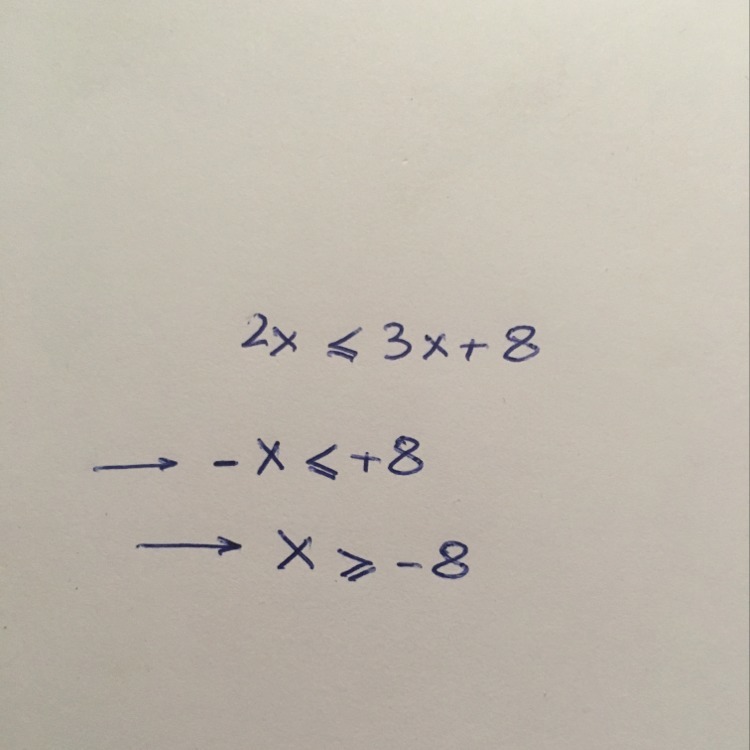 2x ⩽ 3x + 8
→ - x ⩽ +8
→ x ⩾ -8